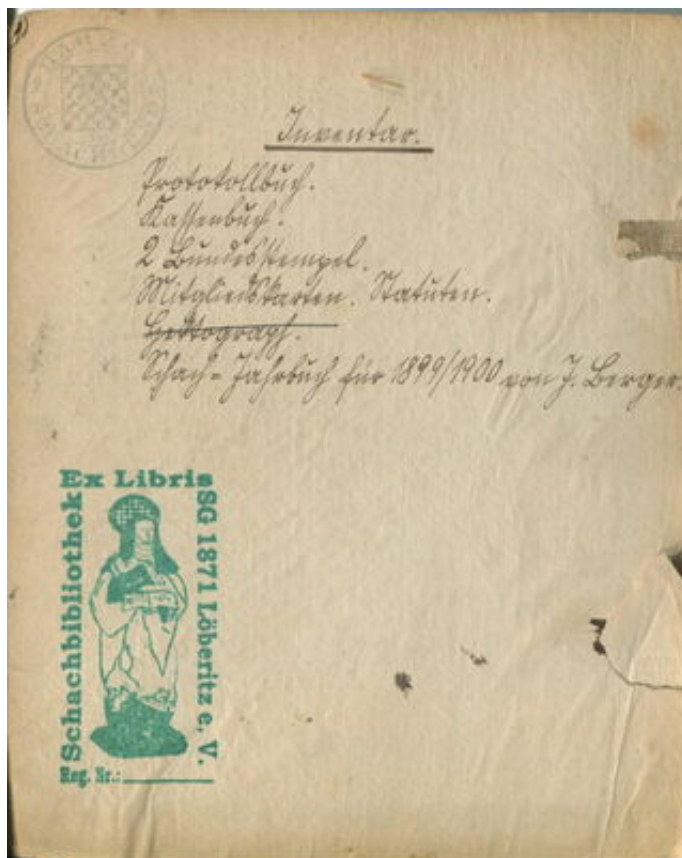 Inventar.
Protokollbuch.
Kassenbuch.
2 Bundesstempel.
Mitgliedskarten. Statuten.
Hektograph.
Schach-Jahrbuch für 1899/1900 von J. Berger.
Ex Libris
Schachbibliothek
SG 1871 Löberitz e. V.
Reg. Nr.: